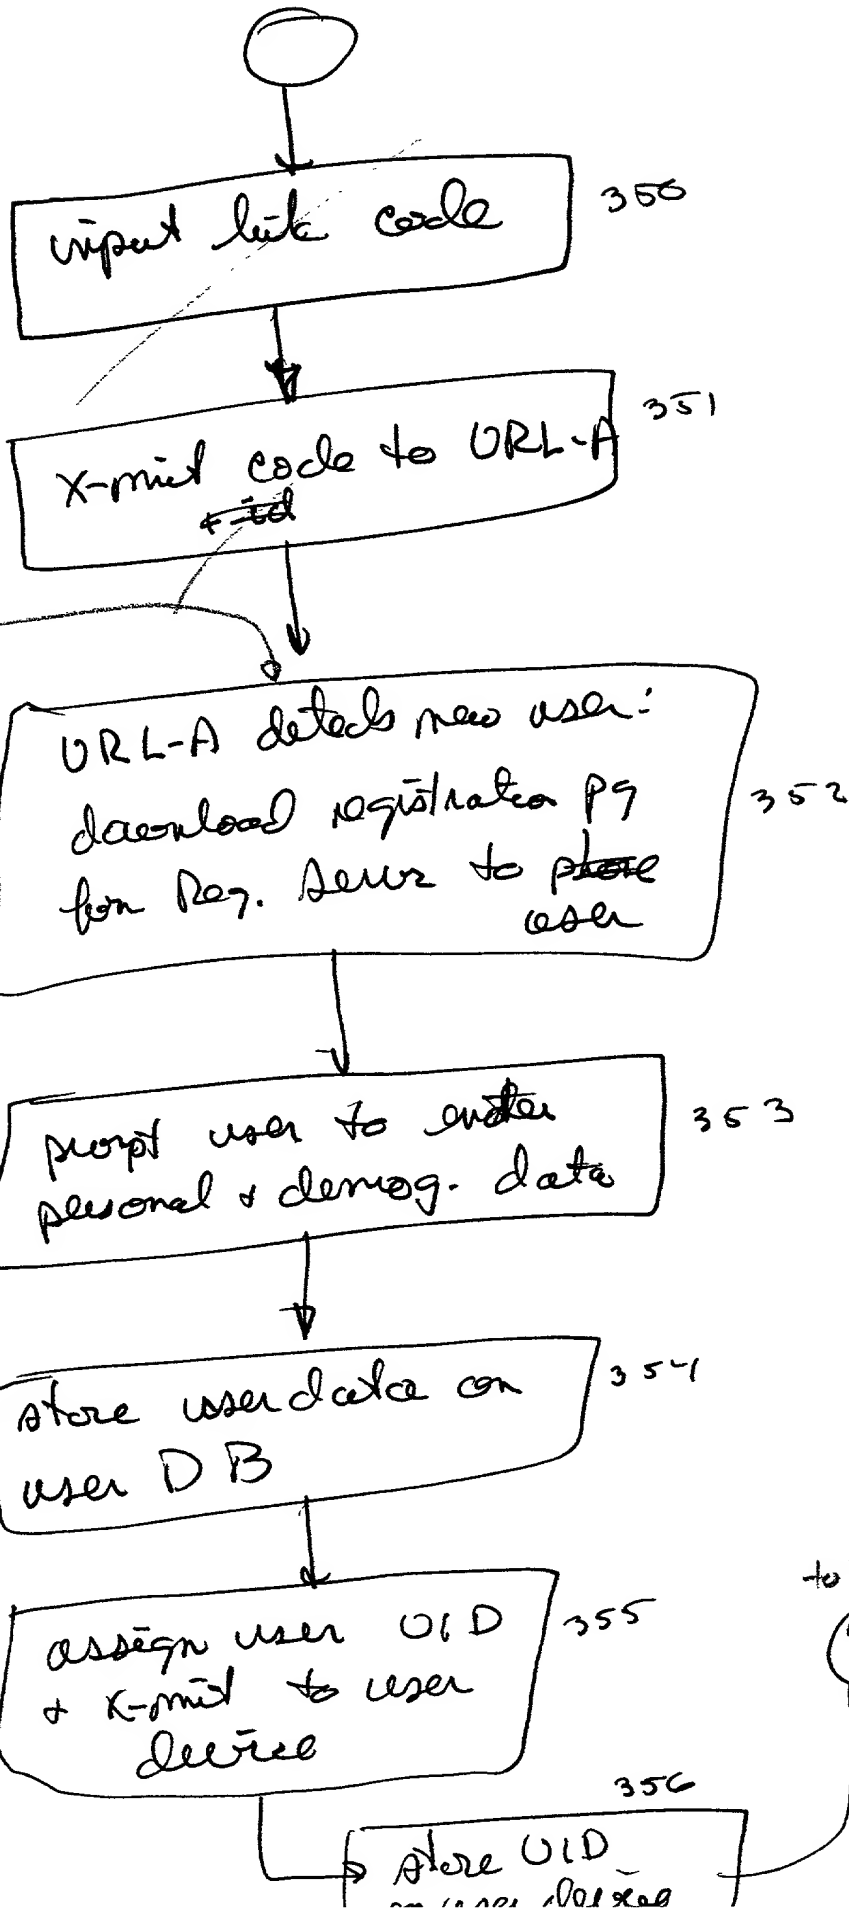 input link code
350
x-mit code to URL-A
351
+ id
URL-A detects new user:
download registration pg
352
from Reg. Server to store
user
prompt user to enter
353
personal + demog. data
store user data on
354
user DB
assign user UID
355
+ x-mit to user
device
to
356
store UID
on user device